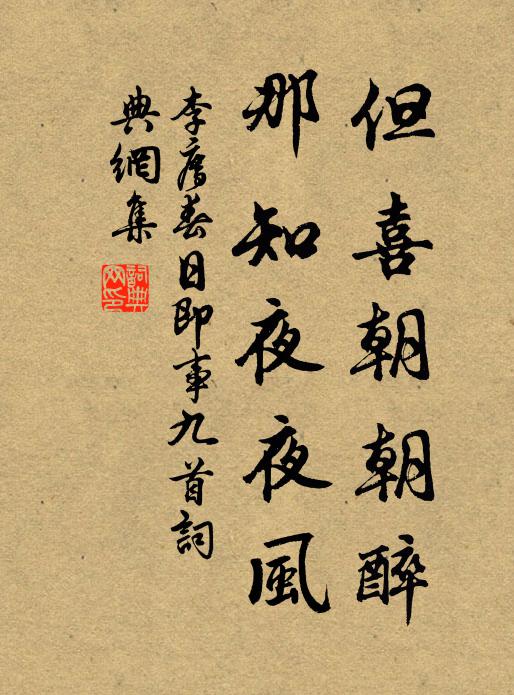 但喜朝朝醉
那知夜夜風
李廌春日即事九首詞
典網集
詞典网印